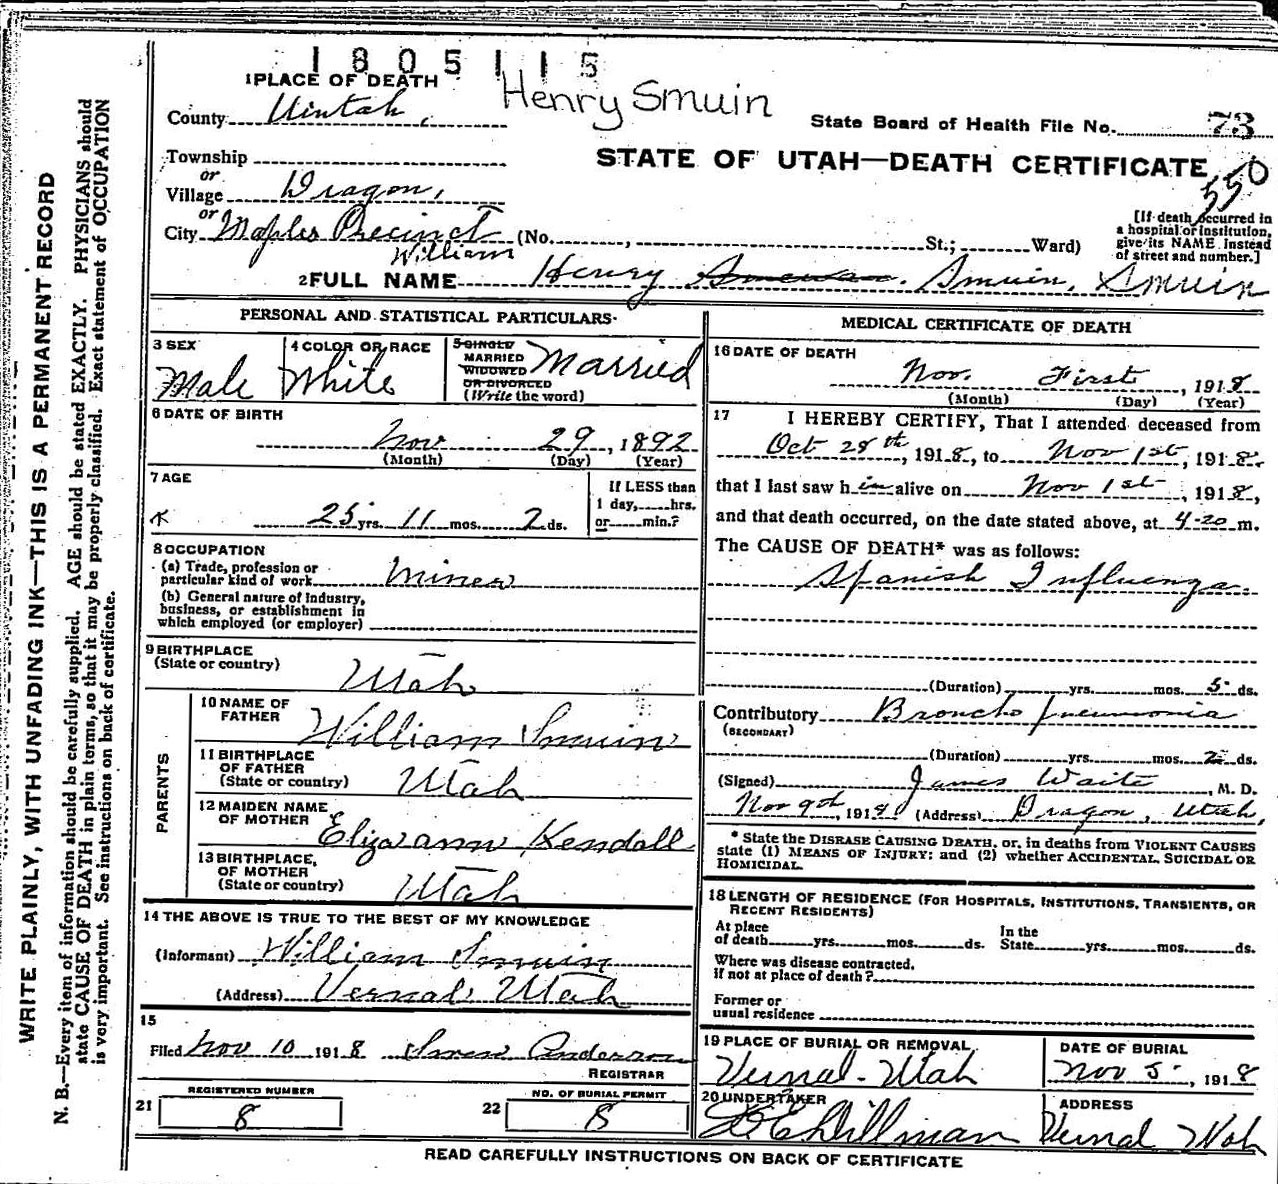 1805115
1 PLACE OF DEATH
Henry Smuin
County Uintah,
State Board of Health File No. 73
Township
STATE OF UTAH—DEATH CERTIFICATE
550
or
Village Dragon,
or
City Maples Precinct (No. , St.; Ward)
[If death occurred in
a hospital or institution,
give its NAME instead
of street and number.]
William
2 FULL NAME Henry Smuin, Smuin
PERSONAL AND STATISTICAL PARTICULARS
3 SEX
Male
4 COLOR OR RACE
White
5 SINGLE
MARRIED
WIDOWED
OR DIVORCED
(Write the word)
Married
6 DATE OF BIRTH
Nov 29, 1892
(Month) (Day) (Year)
7 AGE
25 yrs. 11 mos. 2 ds.
If LESS than
1 day, hrs.
or min.?
8 OCCUPATION
(a) Trade, profession or
particular kind of work Miner
(b) General nature of Industry,
business, or establishment in
which employed (or employer)
9 BIRTHPLACE
(State or country)
Utah
PARENTS
10 NAME OF
FATHER
William Smuin
11 BIRTHPLACE
OF FATHER
(State or country) Utah
12 MAIDEN NAME
OF MOTHER
Elizaann Kendall
13 BIRTHPLACE,
OF MOTHER
(State or country) Utah
14 THE ABOVE IS TRUE TO THE BEST OF MY KNOWLEDGE
(Informant) William Smuin
(Address) Vernal, Utah
15
Filed Nov 10 1918 Anderson
REGISTRAR
REGISTERED NUMBER
21 8
NO. OF BURIAL PERMIT
22 8
MEDICAL CERTIFICATE OF DEATH
16 DATE OF DEATH
Nov. First, 1918
(Month) (Day) (Year)
17 I HEREBY CERTIFY, That I attended deceased from
Oct 28th, 1918, to Nov 1st, 1918.
that I last saw him alive on Nov 1st, 1918,
and that death occurred, on the date stated above, at 4-20 m.
The CAUSE OF DEATH* was as follows:
Spanish Influenza
(Duration) yrs. mos. 5 ds.
Contributory Broncho pneumonia
(SECONDARY)
(Duration) yrs. mos. 2 ds.
(Signed) James Waite, M. D.
Nov 9th, 1918 (Address) Dragon, Utah,
* State the DISEASE CAUSING DEATH, or, in deaths from VIOLENT CAUSES
state (1) MEANS OF INJURY; and (2) whether ACCIDENTAL, SUICIDAL OR
HOMICIDAL.
18 LENGTH OF RESIDENCE (FOR HOSPITALS, INSTITUTIONS, TRANSIENTS, OR
RECENT RESIDENTS)
At place
of death yrs. mos. ds.
In the
State yrs. mos. ds.
Where was disease contracted,
if not at place of death?
Former or
usual residence
19 PLACE OF BURIAL OR REMOVAL
Vernal - Utah
DATE OF BURIAL
Nov 5, 1918
20 UNDERTAKER
Dillman
ADDRESS
Vernal Utah
READ CAREFULLY INSTRUCTIONS ON BACK OF CERTIFICATE
WRITE PLAINLY, WITH UNFADING INK—THIS IS A PERMANENT RECORD
N. B.—Every item of information should be carefully supplied. AGE should be stated EXACTLY. PHYSICIANS should
state CAUSE OF DEATH in plain terms, so that it may be properly classified. Exact statement of OCCUPATION
is very important. See instructions on back of certificate.